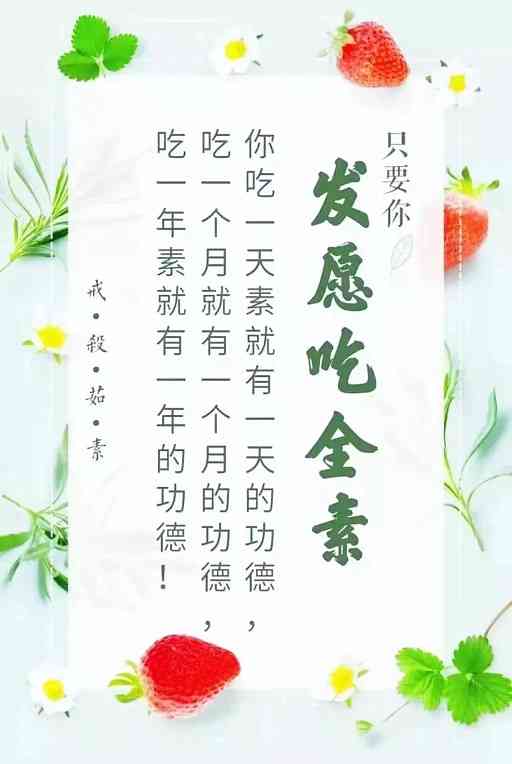 只要你
发愿吃全素
你吃一天素就有一天的功德，
吃一个月就有一个月的功德，
吃一年素就有一年的功德！
戒·殺·茹·素